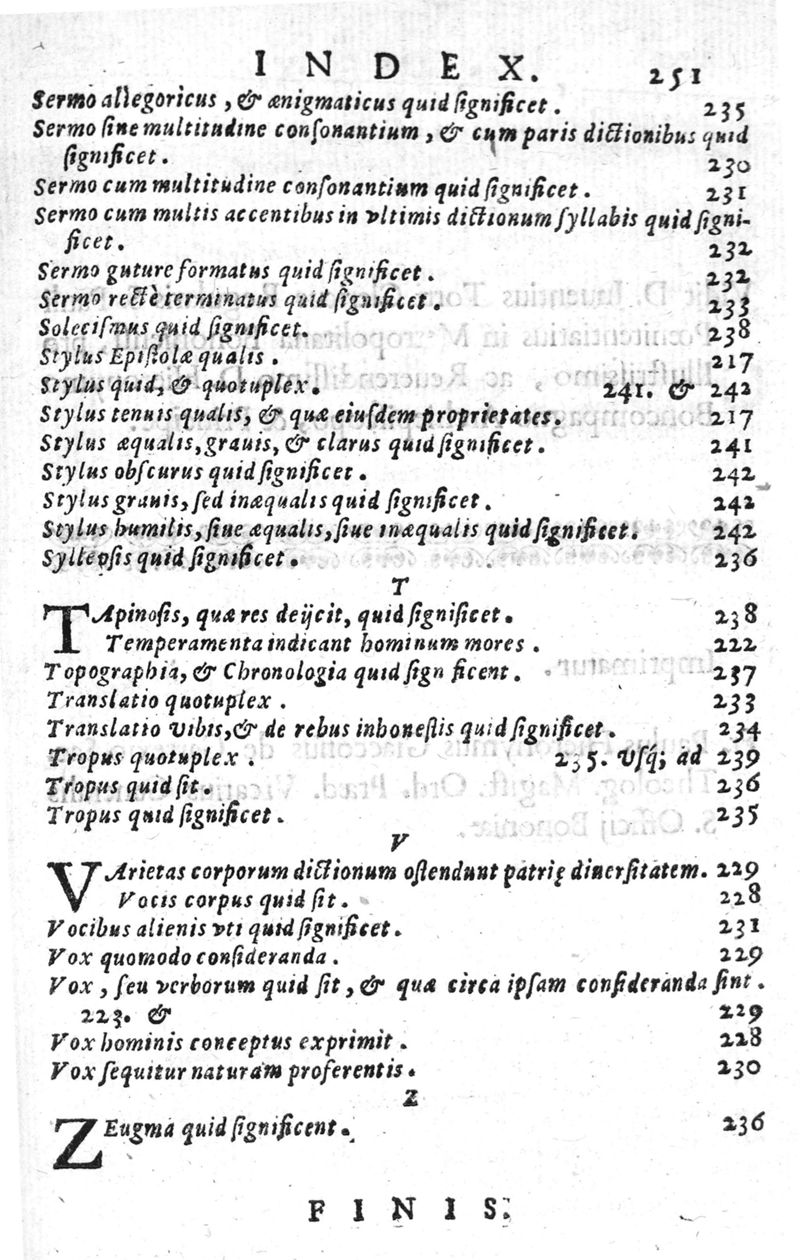 INDEX. 251
Sermo allegoricus, & ænigmaticus quid ſignificet. 235
Sermo ſine multitudine conſonantium, & cum paris dictionibus quid
ſignificet. 230
Sermo cum multitudine conſonantium quid ſignificet. 231
Sermo cum multis accentibus in vltimis dictionum ſyllabis quid ſigni-
ficet. 232
Sermo guture formatus quid ſignificet. 232
Sermo rectè terminatus quid ſignificet. 233
Soleciſmus quid ſignificet. 238
Stylus Epiſtolæ qualis. 217
Stylus quid, & quotuplex. 241. & 242
Stylus tenuis qualis, & quæ eiuſdem proprietates. 217
Stylus æqualis, grauis, & clarus quid ſignificet. 241
Stylus obſcurus quid ſignificet. 242
Stylus grauis, ſed inæqualis quid ſignificet. 242
Stylus humilis, ſiue æqualis, ſiue inæqualis quid ſignificet. 242
Syllepſis quid ſignificet. 236
T
TApinoſis, quæ res deijcit, quid ſignificet. 238
Temperamenta indicant hominum mores. 222
Topographia, & Chronologia quid ſign ficent. 237
Translatio quotuplex. 233
Translatio vibis, & de rebus inhoneſtis quid ſignificet. 234
Tropus quotuplex. 235. Vſq́; ad 239
Tropus quid ſit. 236
Tropus quid ſignificet. 235
V
VArietas corporum dictionum oſtendunt patrię diuerſitatem. 229
Vocis corpus quid ſit. 228
Vocibus alienis vti quid ſignificet. 231
Vox quomodo conſideranda. 229
Vox, ſeu verborum quid ſit, & quæ circa ipſam conſideranda ſint.
223. & 229
Vox hominis conceptus exprimit. 228
Vox ſequitur naturam proferentis. 230
Z
ZEugma quid ſignificent. 236
FINIS.